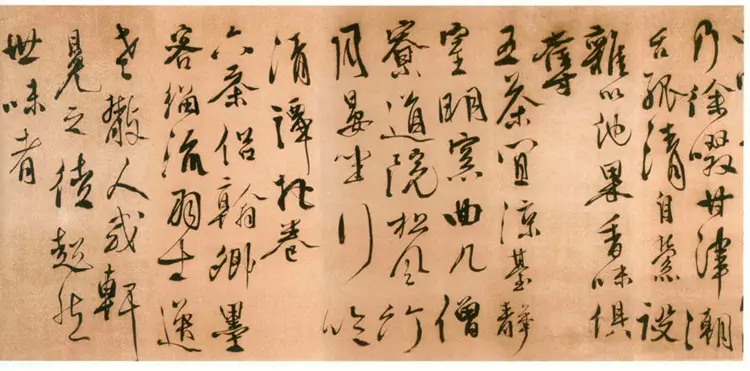 乃徐啜甘津潮
舌孤清自縈設
雜以他果香味俱
奪
五茶宜涼臺靜
室明窻曲几僧
寮道院松風竹
月晏坐行吟
清譚把卷
六茶侶翰卿墨
客緇流羽士逸
老散人或軒
冕之徒超然
世味者